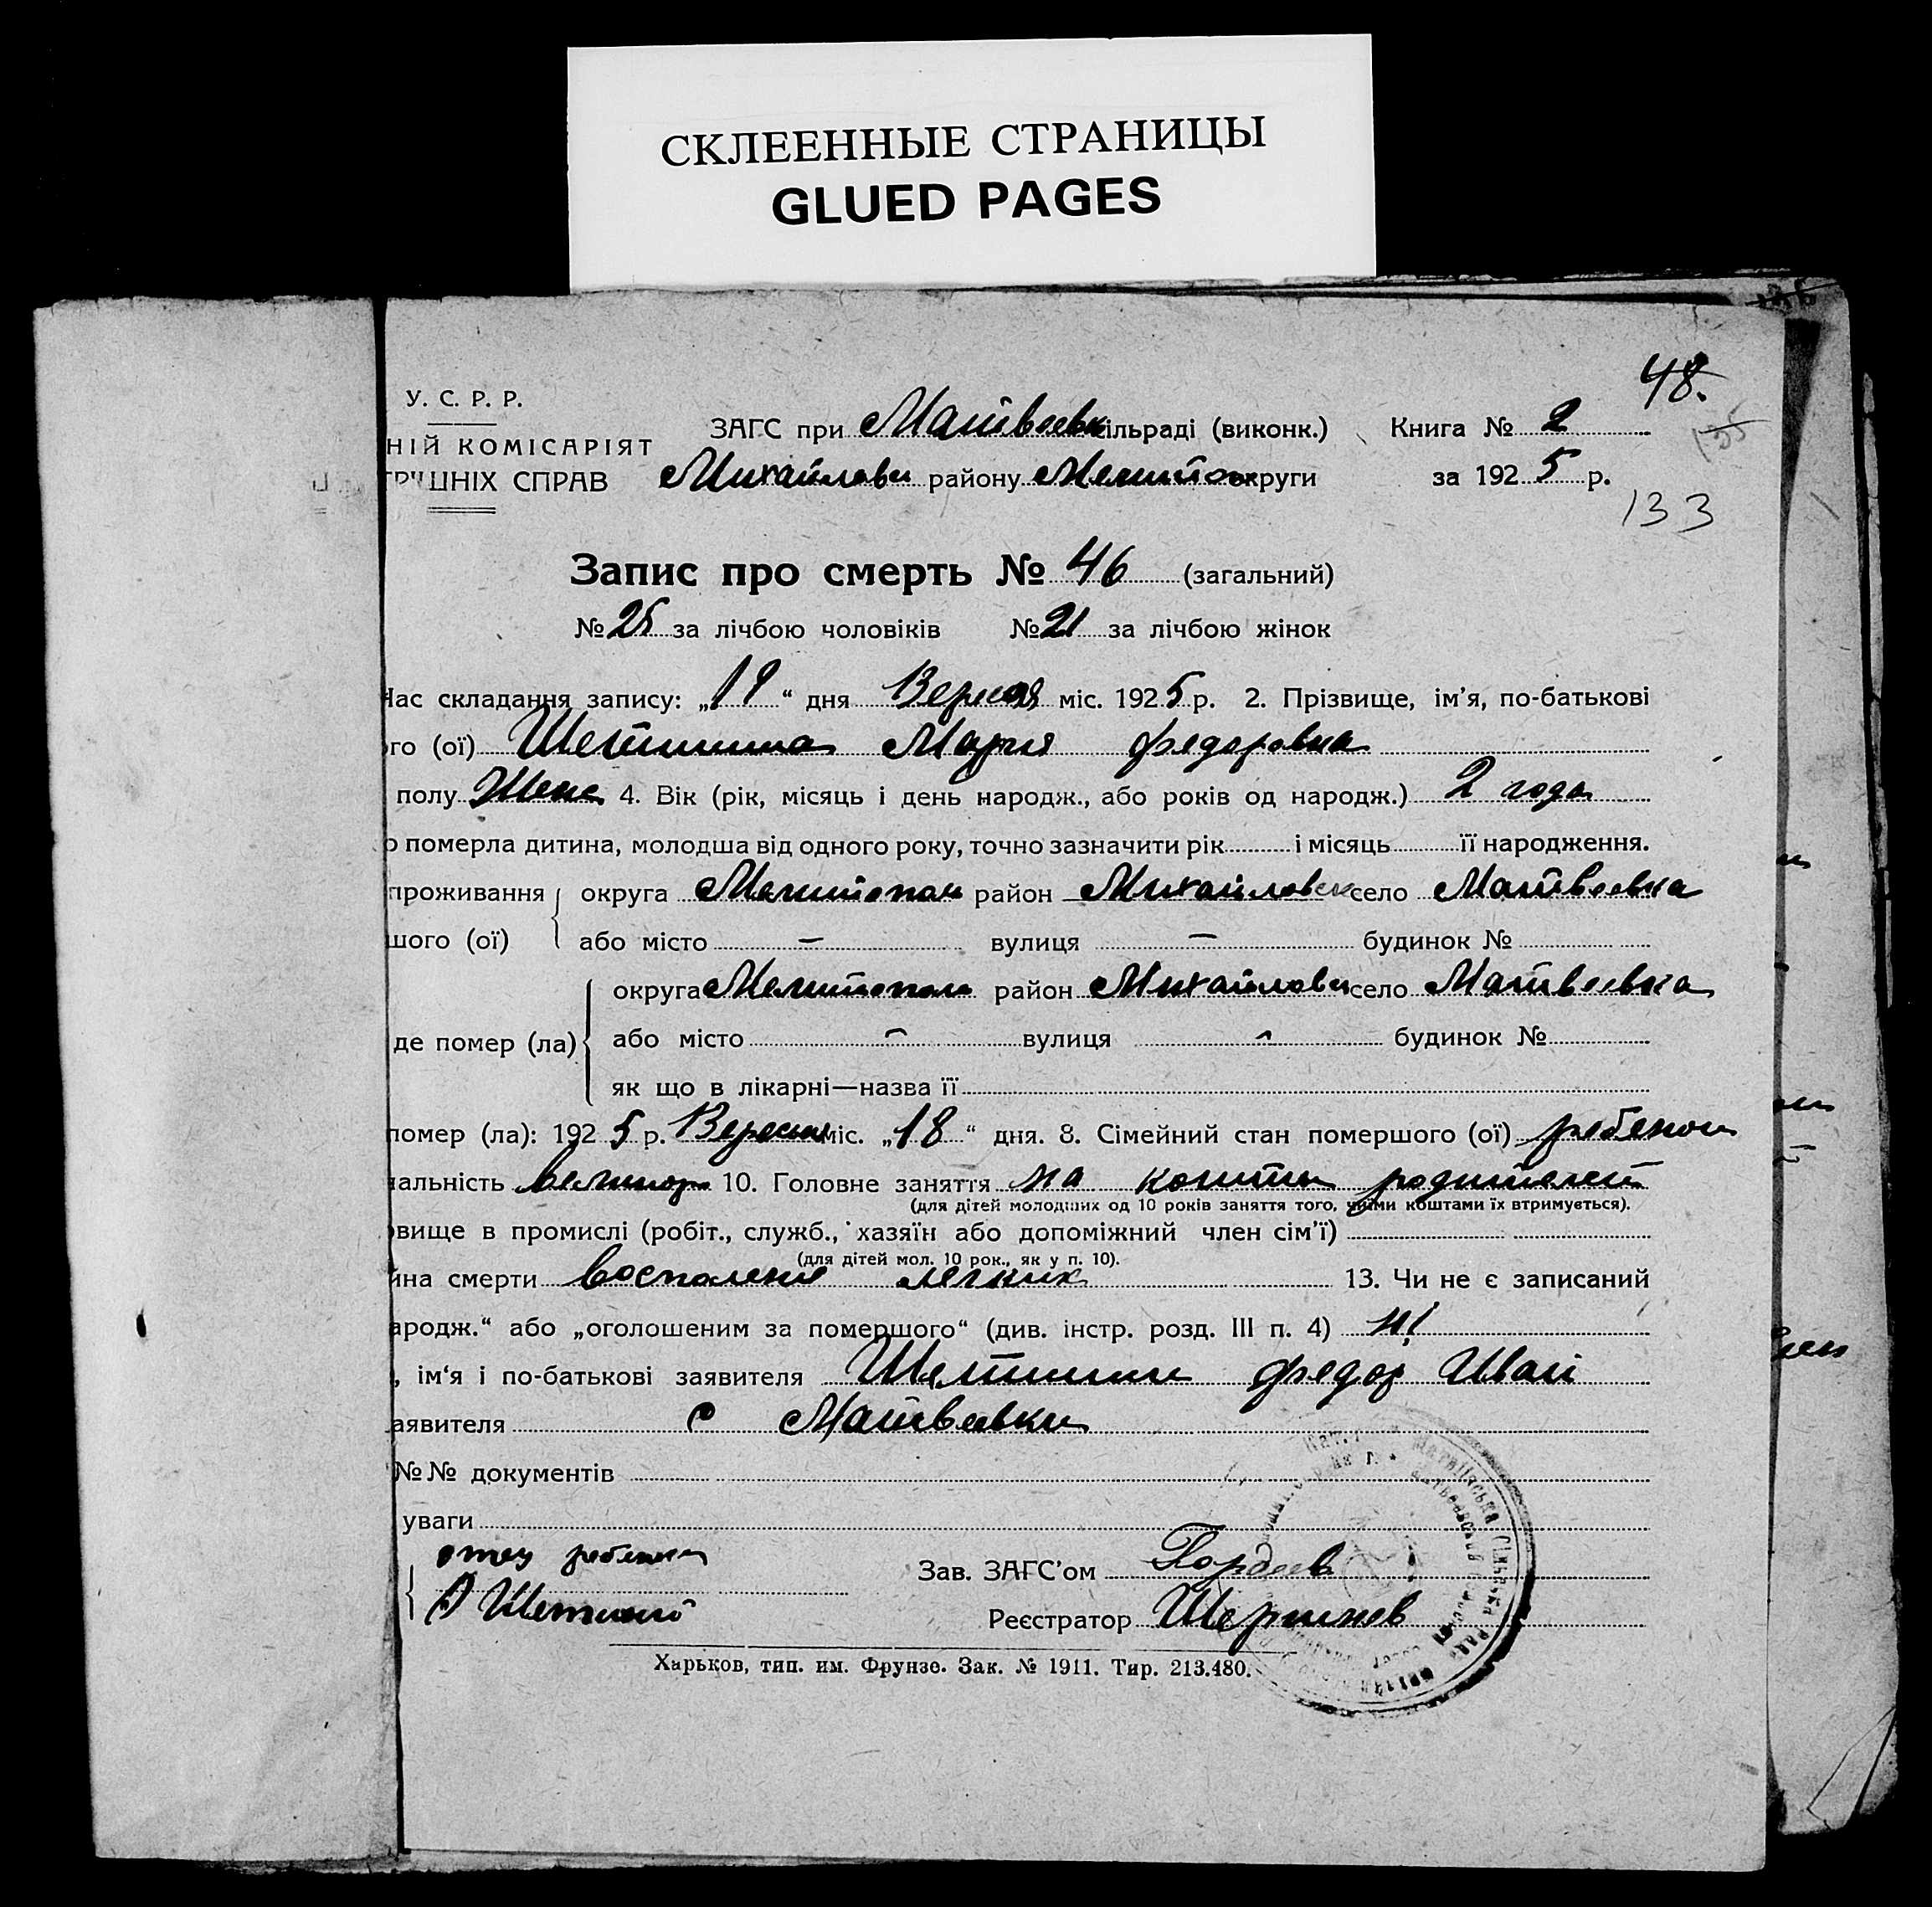 СКЛЕЕННЫЕ СТРАНИЦЫ
GLUED PAGES
48.
У. С. Р. Р.
НІЙ КОМІСАРІЯТ
ШНІХ СПРАВ
ЗАГС при Матвеевк сільраді (виконк.) Книга № 2
Михайловск району Мелитоп округи за 1925 р.
133
Запис про смерть № 46 (загальний)
№ 25 за лічбою чоловіків № 21 за лічбою жінок
Час складання запису: „19“ дня Вересня міс. 1925 р. 2. Прізвище, ім’я, по-батькові
го (ої) Щетинина Мария Федоровна
полу Жене 4. Вік (рік, місяць і день народж., або років од народж.) 2 года
о померла дитина, молодша від одного року, точно зазначити рік і місяць її народження.
проживання округа Мелитопол район Михайловск село Матвеевка
шого (ої) або місто – вулиця – будинок №
округа Мелитопол район Михайловск село Матвеевка
де помер (ла) або місто – вулиця – будинок №
як що в лікарні—назва її
помер (ла): 1925 р. Вересня міс. „18“ дня. 8. Сімейний стан помершого (ої) ребенок
альність великор 10. Головне заняття на кошты родителей
(для дітей молодших од 10 років заняття того, чиїми коштами їх втримується).
овище в промислі (робіт., служб., хазяїн або допоміжний член сім’ї)
(для дітей мол. 10 рок., як у п. 10).
ина смерти воспаление легких 13. Чи не є записаний
ародж.“ або „оголошеним за помершого“ (див. інстр. розд. III п. 4) ні
, ім‘я і по-батькові заявителя Щетинин Федор Иван
аявителя с Матвеевки
№№ документів
уваги
отец ребенка
Щетинин
Зав. ЗАГС’ом Гордеев
Реєстратор
Харьков, тип. им. Фрунзе. Зак. № 1911. Тир. 213.480.